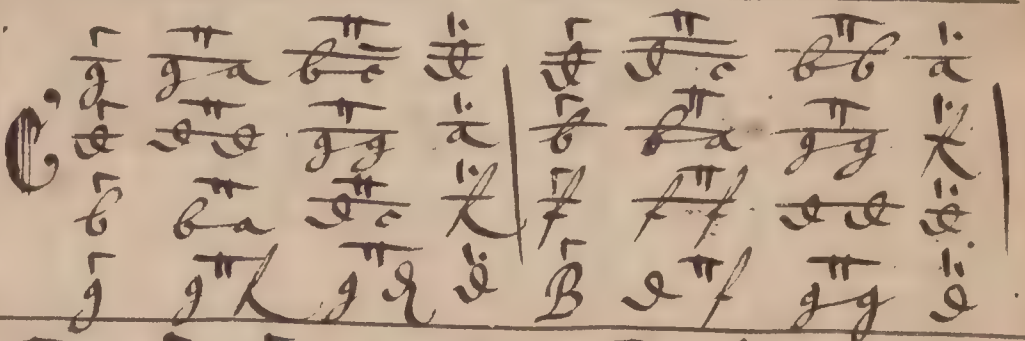 g g a b c d d d c b b a
C d d d g g a b b a g g f
b b a d c f f f f d d d
g g f g f d B d f g g d